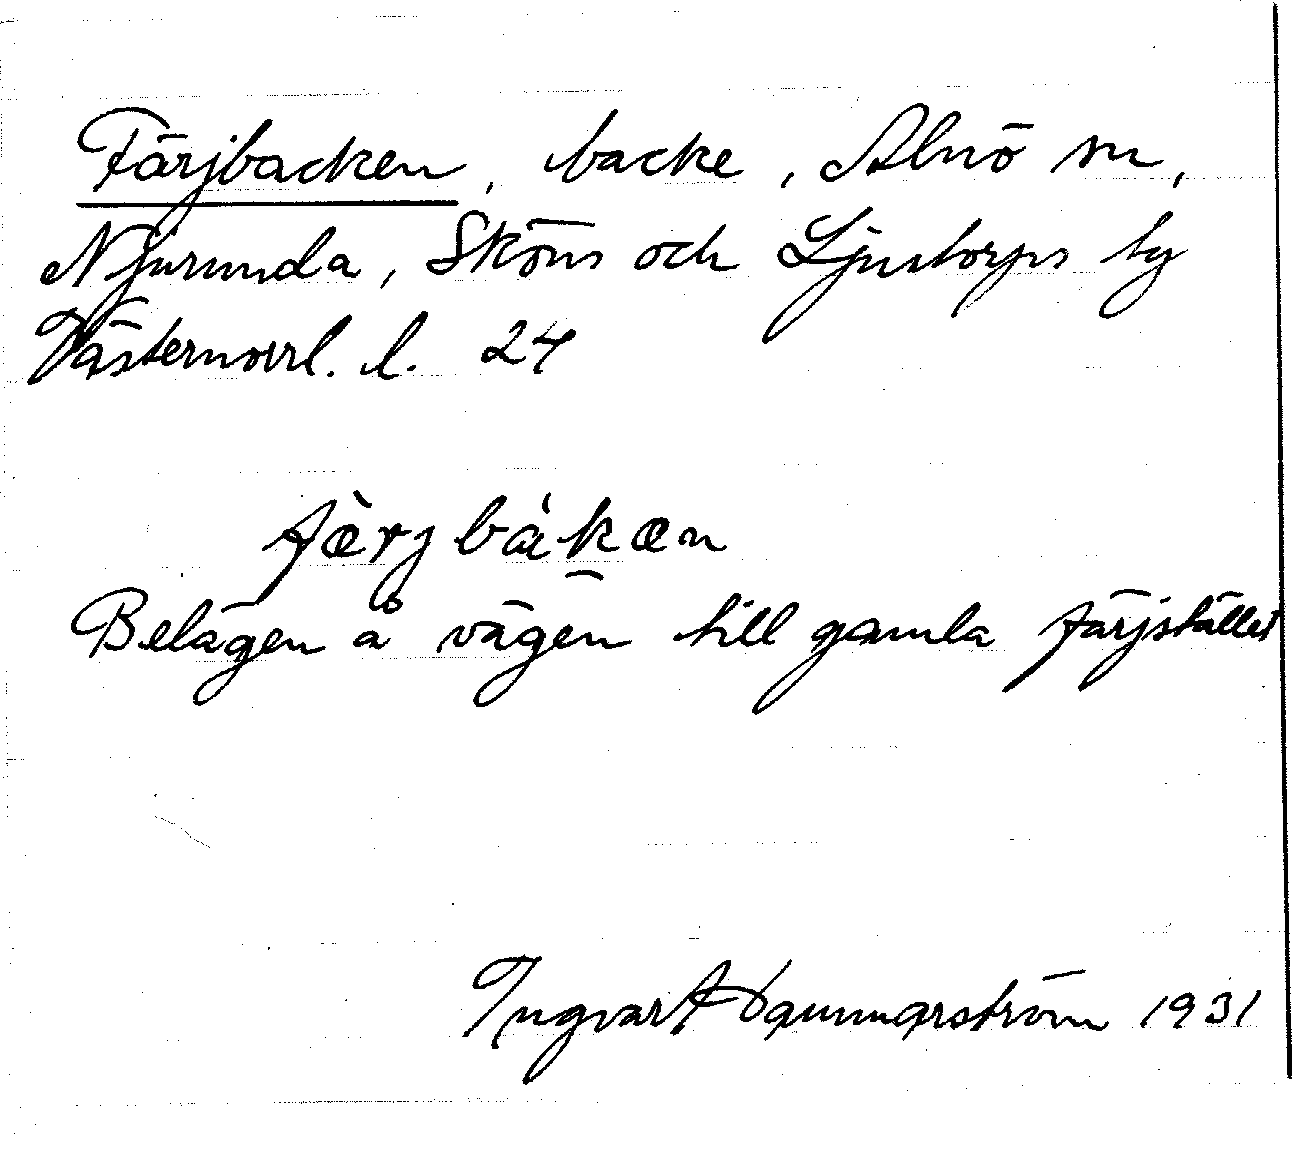 Färjbacken, backe, Alnö sn,
Njurunda, Sköns och Ljustorps tg
Västernorrl. l. 24
færjbàkæn
Belägen å vägen till gamla färjstället
Ingvar Hammarström 1931